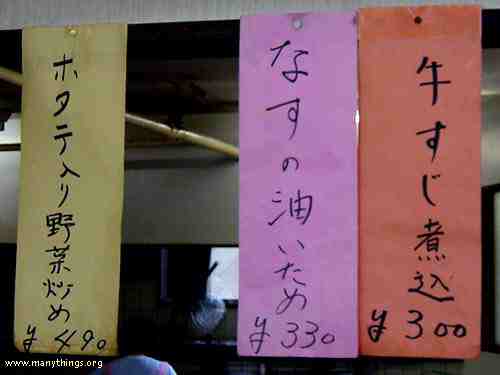 牛すじ煮込
¥300
なすの油いため
¥330
ホタテ入り野菜炒め
¥490
www.manythings.org